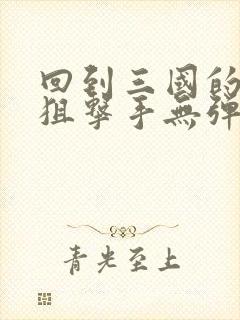 回到三國的
狙擊手無彈
青光至上